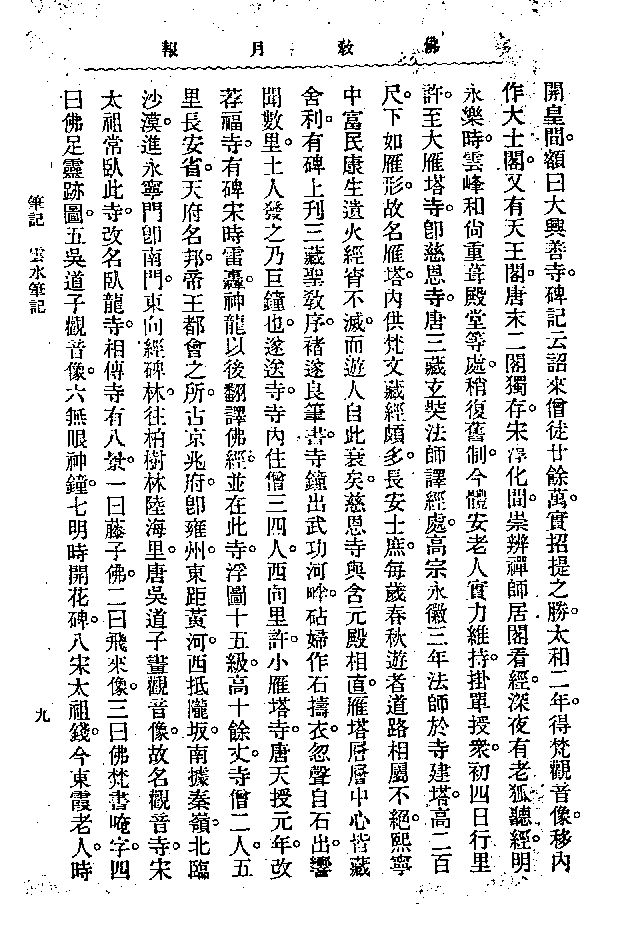 佛教月報
開皇間。額曰大興善寺。碑記云。詔來僧徒廿餘萬。實招提之勝。太和二年。得梵觀音像。移內
作大士閣。又有天王閣。唐末二閣獨存。宋淳化間。崇辨禪師居閣看經。深夜有老狐聽經。明
永樂時。雲峰和尚重葺殿堂等處。稍復舊制。今體安老人實力維持。掛單授衆。初四日行里
許。至大雁塔寺。卽慈恩寺。唐三藏玄奘法師譯經處。高宗永徽三年。法師於寺建塔。高二百
尺。下如雁形。故名雁塔。內供梵文藏經頗多。長安士庶。每歲春秋遊者。道路相屬不絕。熙寧
中富民康生遺火。經宵不滅。而遊人自此衰矣。慈恩寺與含元殿相直。雁塔層層中心。皆藏
舍利。有碑上刊三藏聖敎序。褚遂良筆書。寺鐘出武功河畔。砧婦作石擣衣。忽聲自石出。響
聞數里。土人發之。乃巨鐘也。遂送寺。寺內住僧三四人。西向里許。小雁塔寺。唐天授元年。改
荐福寺。有碑宋時雷轟。神龍以後翻譯佛經。並在此寺。浮圖十五級。高十餘丈。寺僧二人。五
里長安省。天府名邦。帝王都會之所。古京兆府。卽雍州。東距黃河。西抵隴坂。南據秦嶺。北臨
沙漠。進永寧門卽南門。東向經碑林。往柏樹林陸海里。唐吳道子畫觀音像。故名觀音寺。宋
太祖常臥此寺。改名臥龍寺。相傳寺有八景。一曰藤子佛。二曰飛來像。三曰佛梵書唵字。四
曰佛足靈跡圖。五吳道子觀音像。六無眼神鐘。七明時開花碑。八宋太祖錢。今東霞老人。時
筆記　雲水筆記
九